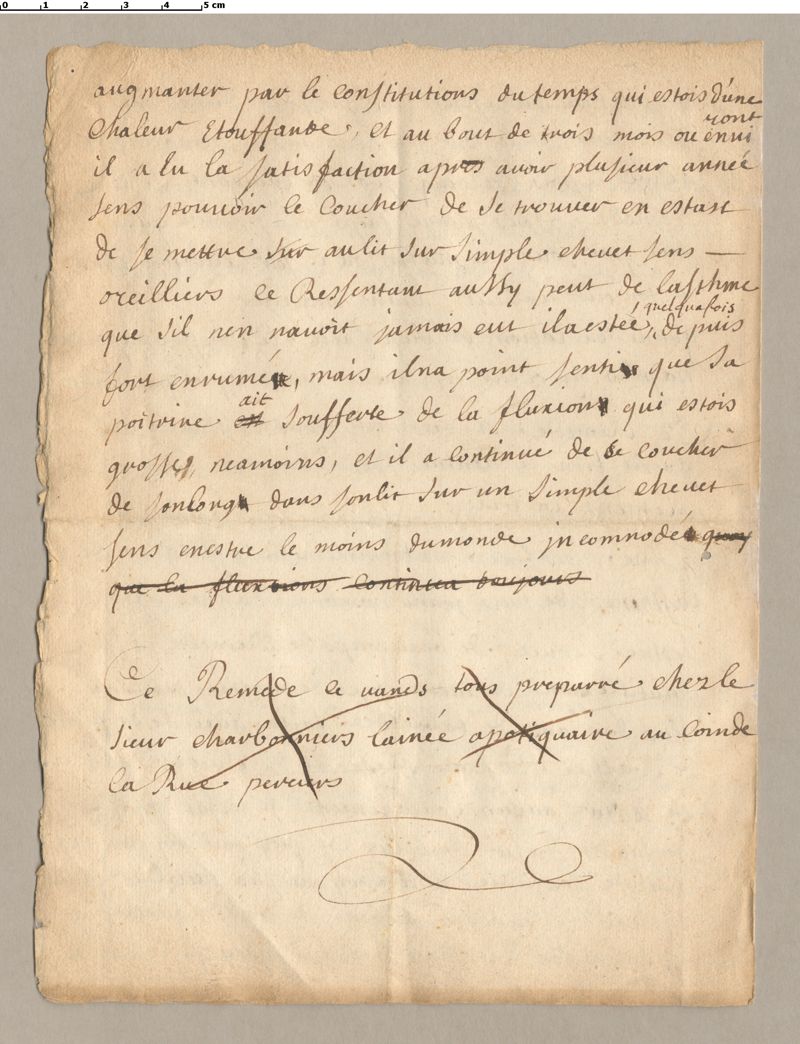 0 1 2 3 4 5 cm
augmanter par le Constitutions du temps qui estois d'une
Chaleur Etouffande, et au bout de trois mois ou envi ront
il a lu la satisfaction apres avoir plusieur année
sens pouvoir se Coucher de se trouver en estast
de se mettre sur au lit sur simple chevet sens —
oreilliers ce Ressentant aussy peut de lasthme
que sil nen navoit jamais eut il a estéé, quelquafois depuis
fort enrumé, mais il na point senti que sa
poitrine est ait soufferte de la fluxion qui estois
grosse, neamoins, et il a continué de se coucher
de son long dans son lit sur un simple chevet
sens enestre le moins du monde jncommodé quoy
que la fluxions continua toujours
Ce Remede ce vands tous preparré chez le
sieur charbonniers lainée apotiquaire au Coin de
la Rue perciers